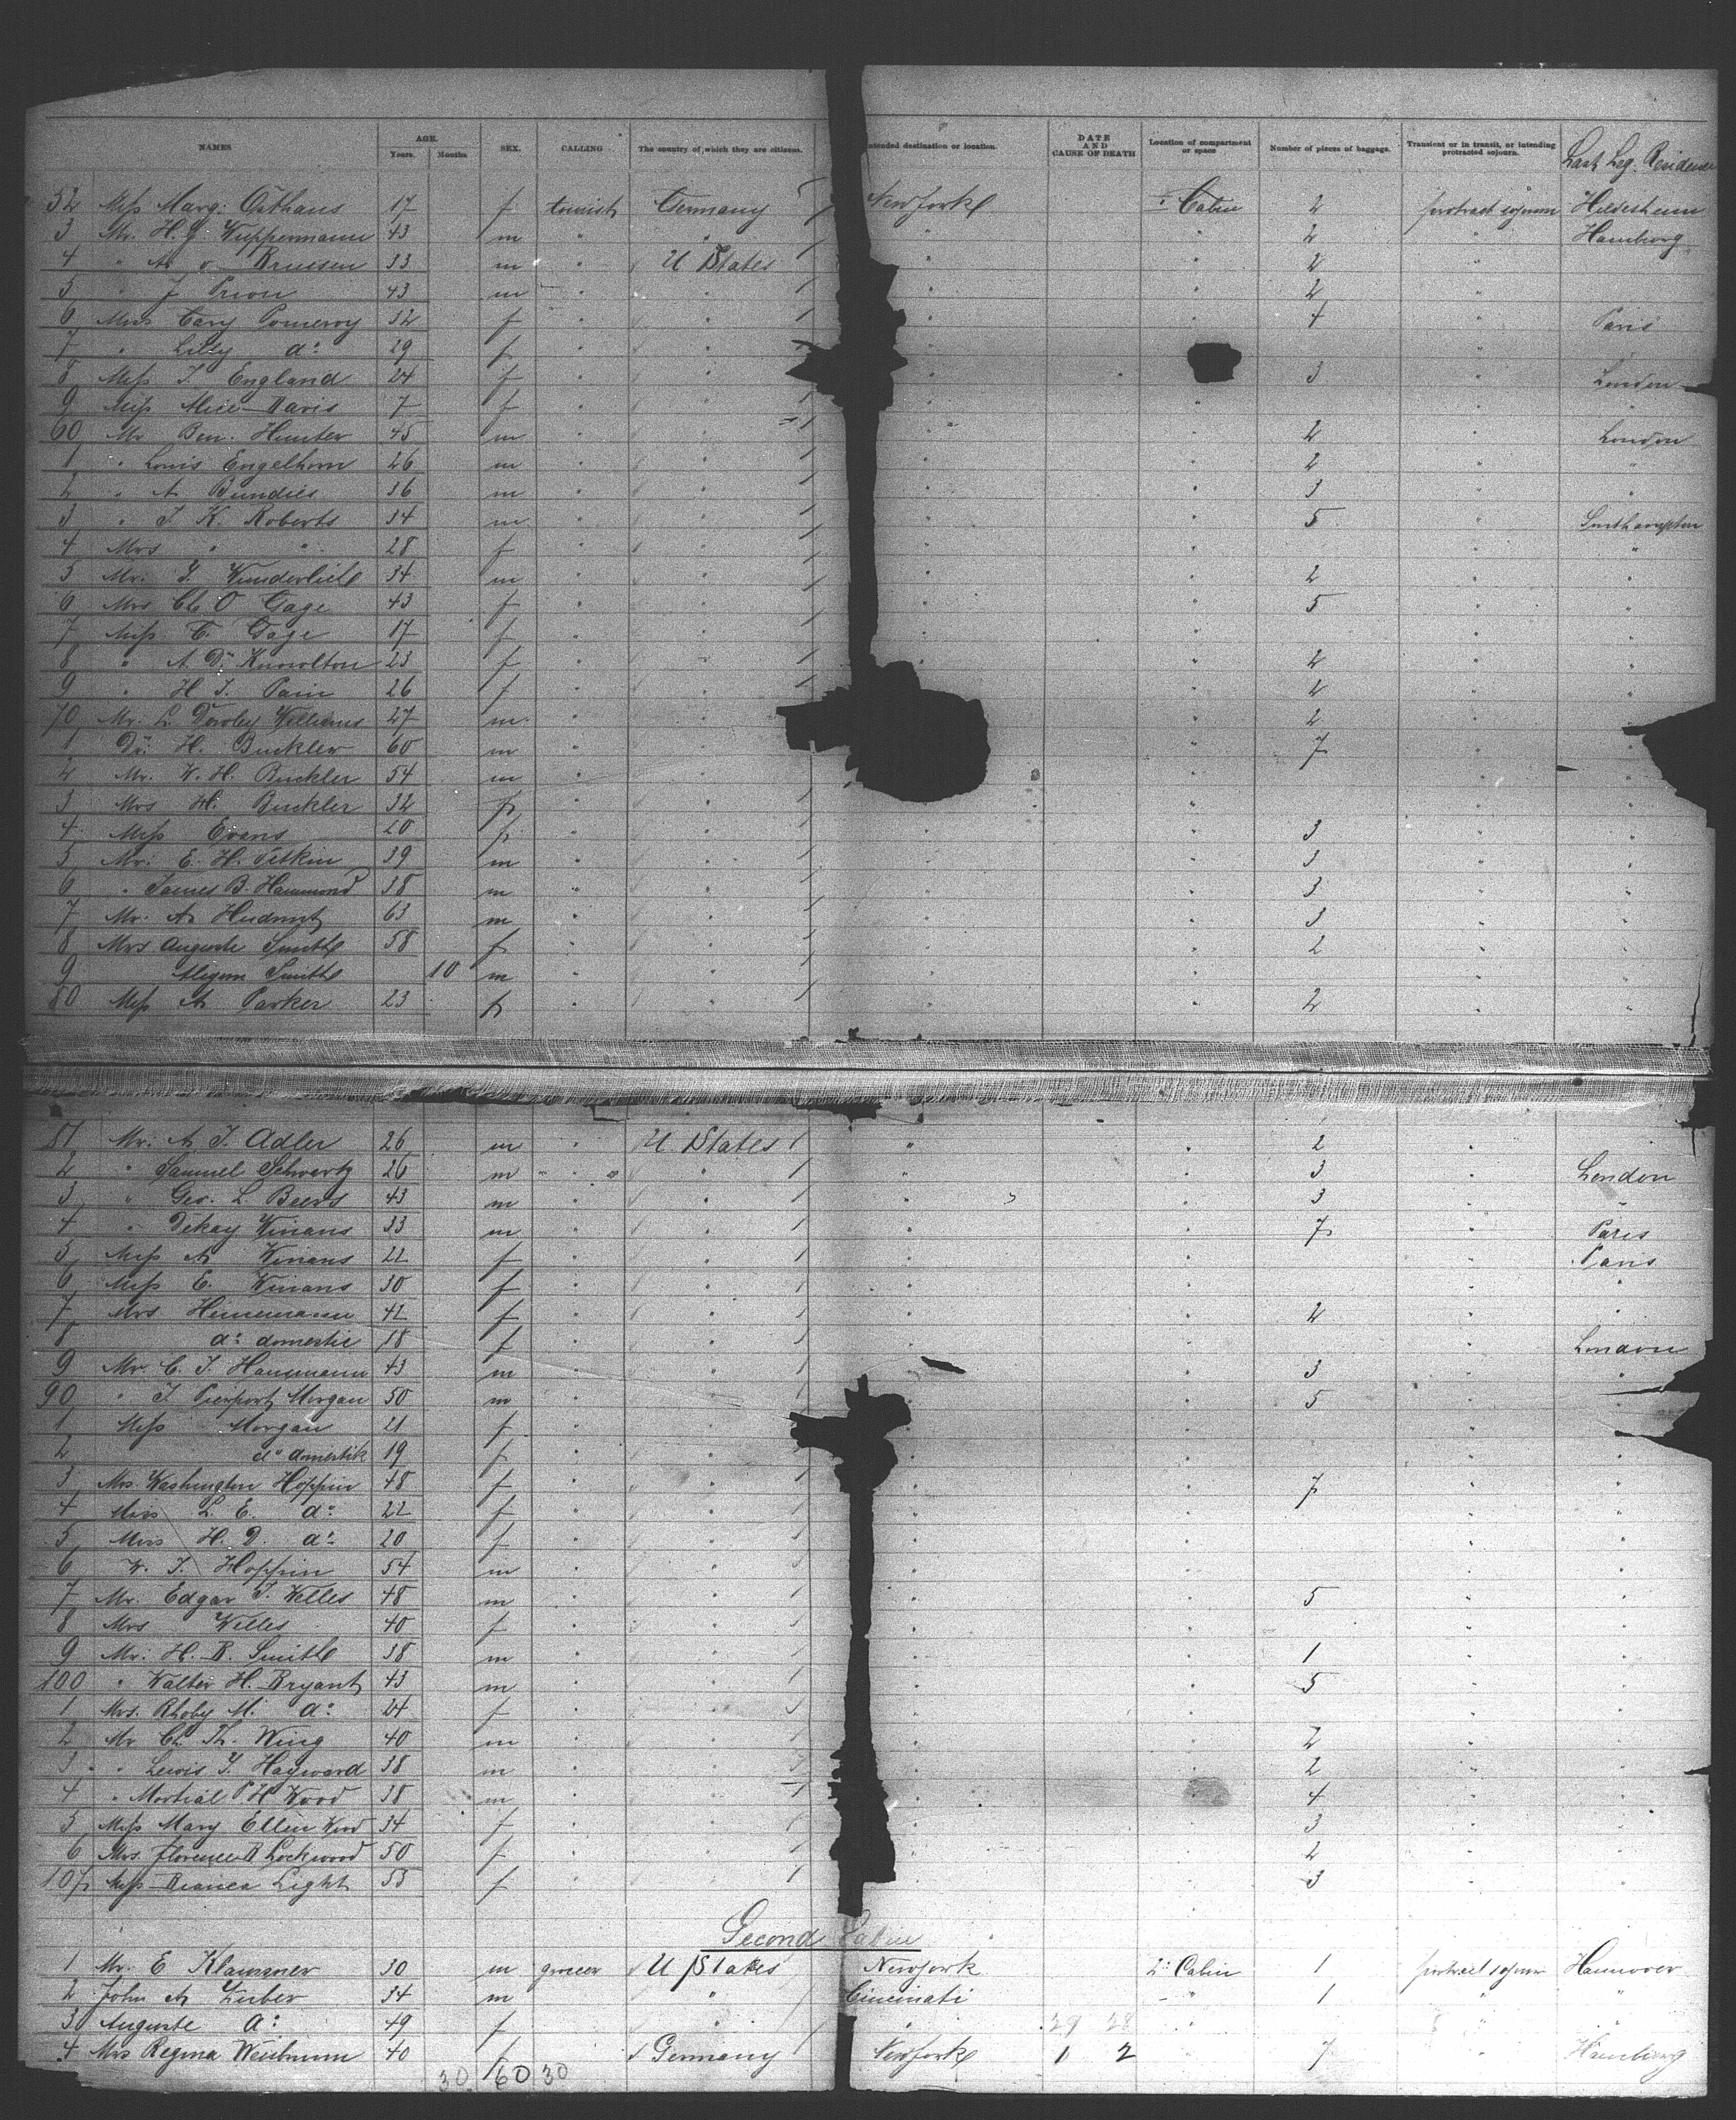 NAMES AGE. Years. Months SEX. CALLING The country of which they are citizens. ntended destination or location. DATE AND CAUSE OF DEATH Location of compartment or space Number of pieces of baggage. Transient or in transit, or intending protracted sojourn. Last Leg. Residence
52 Miss Marg: Osthaus 17 f tourist Germany New York I Cabin 2 protract sojourn Hildesheim
3 Mr. H. J. Wuppermann 43 m " " " " 2 " Hamburg
4 " A. v. Bruesen 33 m " U States " " 2 "
5 " J Prion 43 m " " " " 2 "
6 Mrs Cary Pomeroy 32 f " " " " 4 " Paris
7 " Lilly do 29 f " " " "
8 Miss T. England 24 f " " " 3 " London
9 Miss Alice Davis 7 f " " " " "
60 Mr Ben. Hunter 45 m " " " " 2 " London
1 " Louis Engelhorn 26 m " " " " 2 " "
2 " A Bundies 36 m " " " " 3 " "
3 " J. K. Roberts 34 m " " " " 5 " Southampton
4 Mrs " " 28 f " " " " " "
5 Mr. Y. Wunderlich 34 m " " " " 2 " "
6 Mrs Ch. O Gage 43 f " " " " 5 " "
7 Miss E. Gage 17 f " " " " " "
8 " A. D. Knowlton 23 f " " " " 2 " "
9 " H J. Pain 26 f " " " 2 " "
70 Mr. L. Dowby Williams 27 m " " " 2 "
1 Dr. H. Buckler 60 m " " " 7 " "
2 Mr. W. H. Buckler 54 m " " " " "
3 Mrs H. Buckler 32 f " " " " "
4 Miss Evans 20 f " " " " 3 " "
5 Mr. E. H. Pitkin 39 m " " " " 3 " "
6 " James B. Hammond 38 m " " " " 3 " "
7 Mr. A. Hudnut 63 m " " " " 3 " "
8 Mrs Auguste Smith 58 f " " " " 2 " "
9 Smith 10 m " " " " " "
80 Miss A. Parker 23 f " " " " 2 " "
81 Mr. A. J. Adler 26 m " U. States " " 2 "
2 " Samuel Schwartz 26 m " " " " 3 " London
3 " Geo. L. Beers 43 m " " " " 3 " "
4 " Dekay Winans 33 m " " " " 7 " Paris
5 Miss A. Winans 22 f " " " " " Paris
6 Miss C. Winans 30 f " " " " " "
7 Mrs Heinemann 42 f " " " " 2 " "
8 do domestic 18 f " " " " " London
9 Mr. C. J. Hausmann 43 m " " " 3 " "
90 " J. Pierpont Morgan 50 m " " " 5 "
1 Miss Morgan 21 f " " " " "
2 do domestik 19 f " " " " "
3 Mrs. Washington Hoppin 48 f " " " " 7 " "
4 Miss L. E. do 22 f " " " " " "
5 Miss H. D. do 20 f " " " " " "
6 W. J. Hoppin 54 m " " " " " "
7 Mr. Edgar T. Welles 48 m " " " " 5 " "
8 Mrs Welles 40 f " " " " " "
9 Mr. H. B. Smith 38 m " " " " 1 " "
100 " Walter H. Bryant 43 m " " " " 5 " "
1 Mrs. Rhoby M. do 24 f " " " " " "
2 Mr Ch. Th. Wing 40 m " " " " 2 " "
3 " Lewis Y. Hayward 38 m " " " " 2 " "
4 " Martial P. H Wood 38 m " " " 4 " "
5 Miss Mary Ellen Wood 34 f " " " " 3 " "
6 Mrs. Florence B Lockwood 50 f " " " " 2 " "
107 Miss Bianca Light 53 f " " " " 3 " "
Second Cabin
1 Mr. E Klausner 30 m grocer U States New York 2: Cabin 1 protract sojourn Hannover
2 John A Huber 34 m " Cincinati " 1 " "
3 Auguste do 49 f " " 29 28 " " "
4 Mrs Regina Weilmann 40 f Germany New York 1 2 " 7 " Hamburg
30 60 30